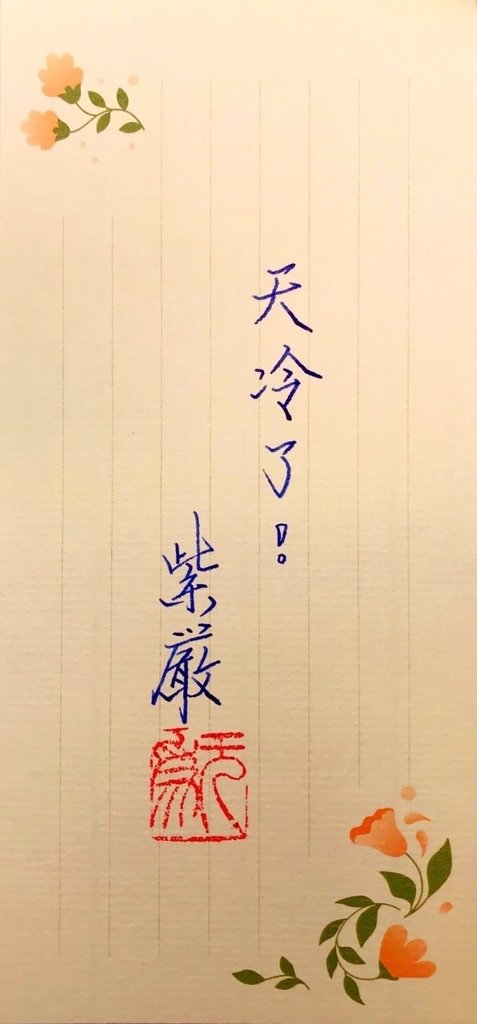 天冷了！
紫嚴